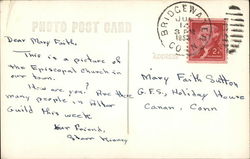 PHOTO POST CARD
Dear Mary Faith,
This is a picture of
the Episcopal Church in
our town.
How are you? Are there
many people in Altar
Guild this week
Your Friend,
BRIDGEWATER
JUL
14
CONN.
2¢
ADDRESS
Mary Faith Sutton
G.F.S. Holiday House
Canaan, Conn